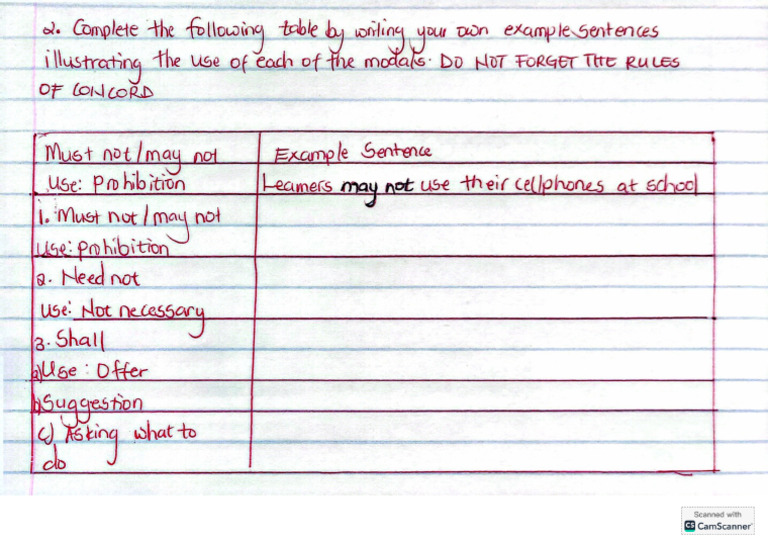 2. Complete the following table by writing your own example sentences
illustrating the use of each of the modals. DO NOT FORGET THE RULES
OF CONCORD
Must not/may not
Use: Prohibition
Example Sentence
Learners may not use their cellphones at school
1. Must not/may not
Use: prohibition
2. Need not
Use: Not necessary
3. Shall
a) Use: Offer
b) Suggestion
c) Asking what to
do
Scanned with
CS CamScanner